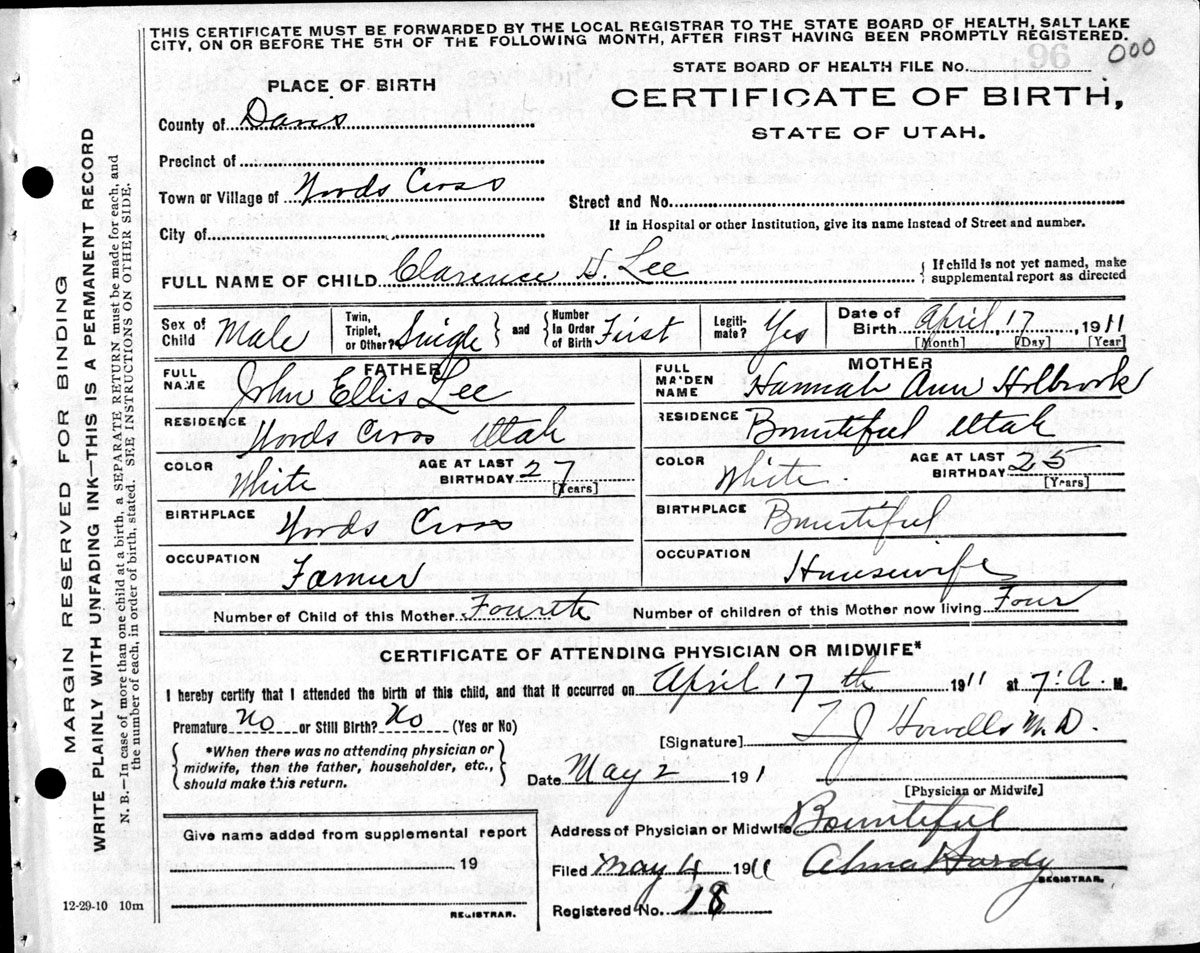 THIS CERTIFICATE MUST BE FORWARDED BY THE LOCAL REGISTRAR TO THE STATE BOARD OF HEALTH, SALT LAKE
CITY, ON OR BEFORE THE 5TH OF THE FOLLOWING MONTH, AFTER FIRST HAVING BEEN PROMPTLY REGISTERED.
000
STATE BOARD OF HEALTH FILE No.
PLACE OF BIRTH
CERTIFICATE OF BIRTH,
STATE OF UTAH.
County of Davis
Precinct of
Town or Village of Woods Cross
Street and No.
City of
If in Hospital or other Institution, give its name instead of Street and number.
FULL NAME OF CHILD Clarence H. Lee
{ If child is not yet named, make
supplemental report as directed
Sex of Child Male
Twin, Triplet, or Other? Single } and { Number in Order of Birth First
Legitimate? Yes
Date of Birth April 17, 1911
[Month] [Day] [Year]
FATHER
FULL NAME John Ellis Lee
RESIDENCE Woods Cross Utah
COLOR White
AGE AT LAST BIRTHDAY 27
[Years]
BIRTHPLACE Woods Cross
OCCUPATION Farmer
MOTHER
FULL MAIDEN NAME Hannah Ann Holbrook
RESIDENCE Bountiful Utah
COLOR White
AGE AT LAST BIRTHDAY 25
[Years]
BIRTHPLACE Bountiful
OCCUPATION Housewife
Number of Child of this Mother Fourth Number of children of this Mother now living Four
CERTIFICATE OF ATTENDING PHYSICIAN OR MIDWIFE*
I hereby certify that I attended the birth of this child, and that it occurred on April 17th 1911 at 7. A. M.
Premature No or Still Birth? No (Yes or No)
{ *When there was no attending physician or
midwife, then the father, householder, etc.,
should make this return. }
[Signature] T J Howells M.D.
Date May 2 1911
[Physician or Midwife]
Give name added from supplemental report
, 19
REGISTRAR.
Address of Physician or Midwife Bountiful
Filed May 4 1911 Alma Hardy
REGISTRAR.
Registered No. 18
12-29-10 10m
MARGIN RESERVED FOR BINDING
WRITE PLAINLY WITH UNFADING INK—THIS IS A PERMANENT RECORD
N. B.—In case of more than one child at a birth, a SEPARATE RETURN must be made for each, and
the number of each, in order of birth, stated. SEE INSTRUCTIONS ON OTHER SIDE.